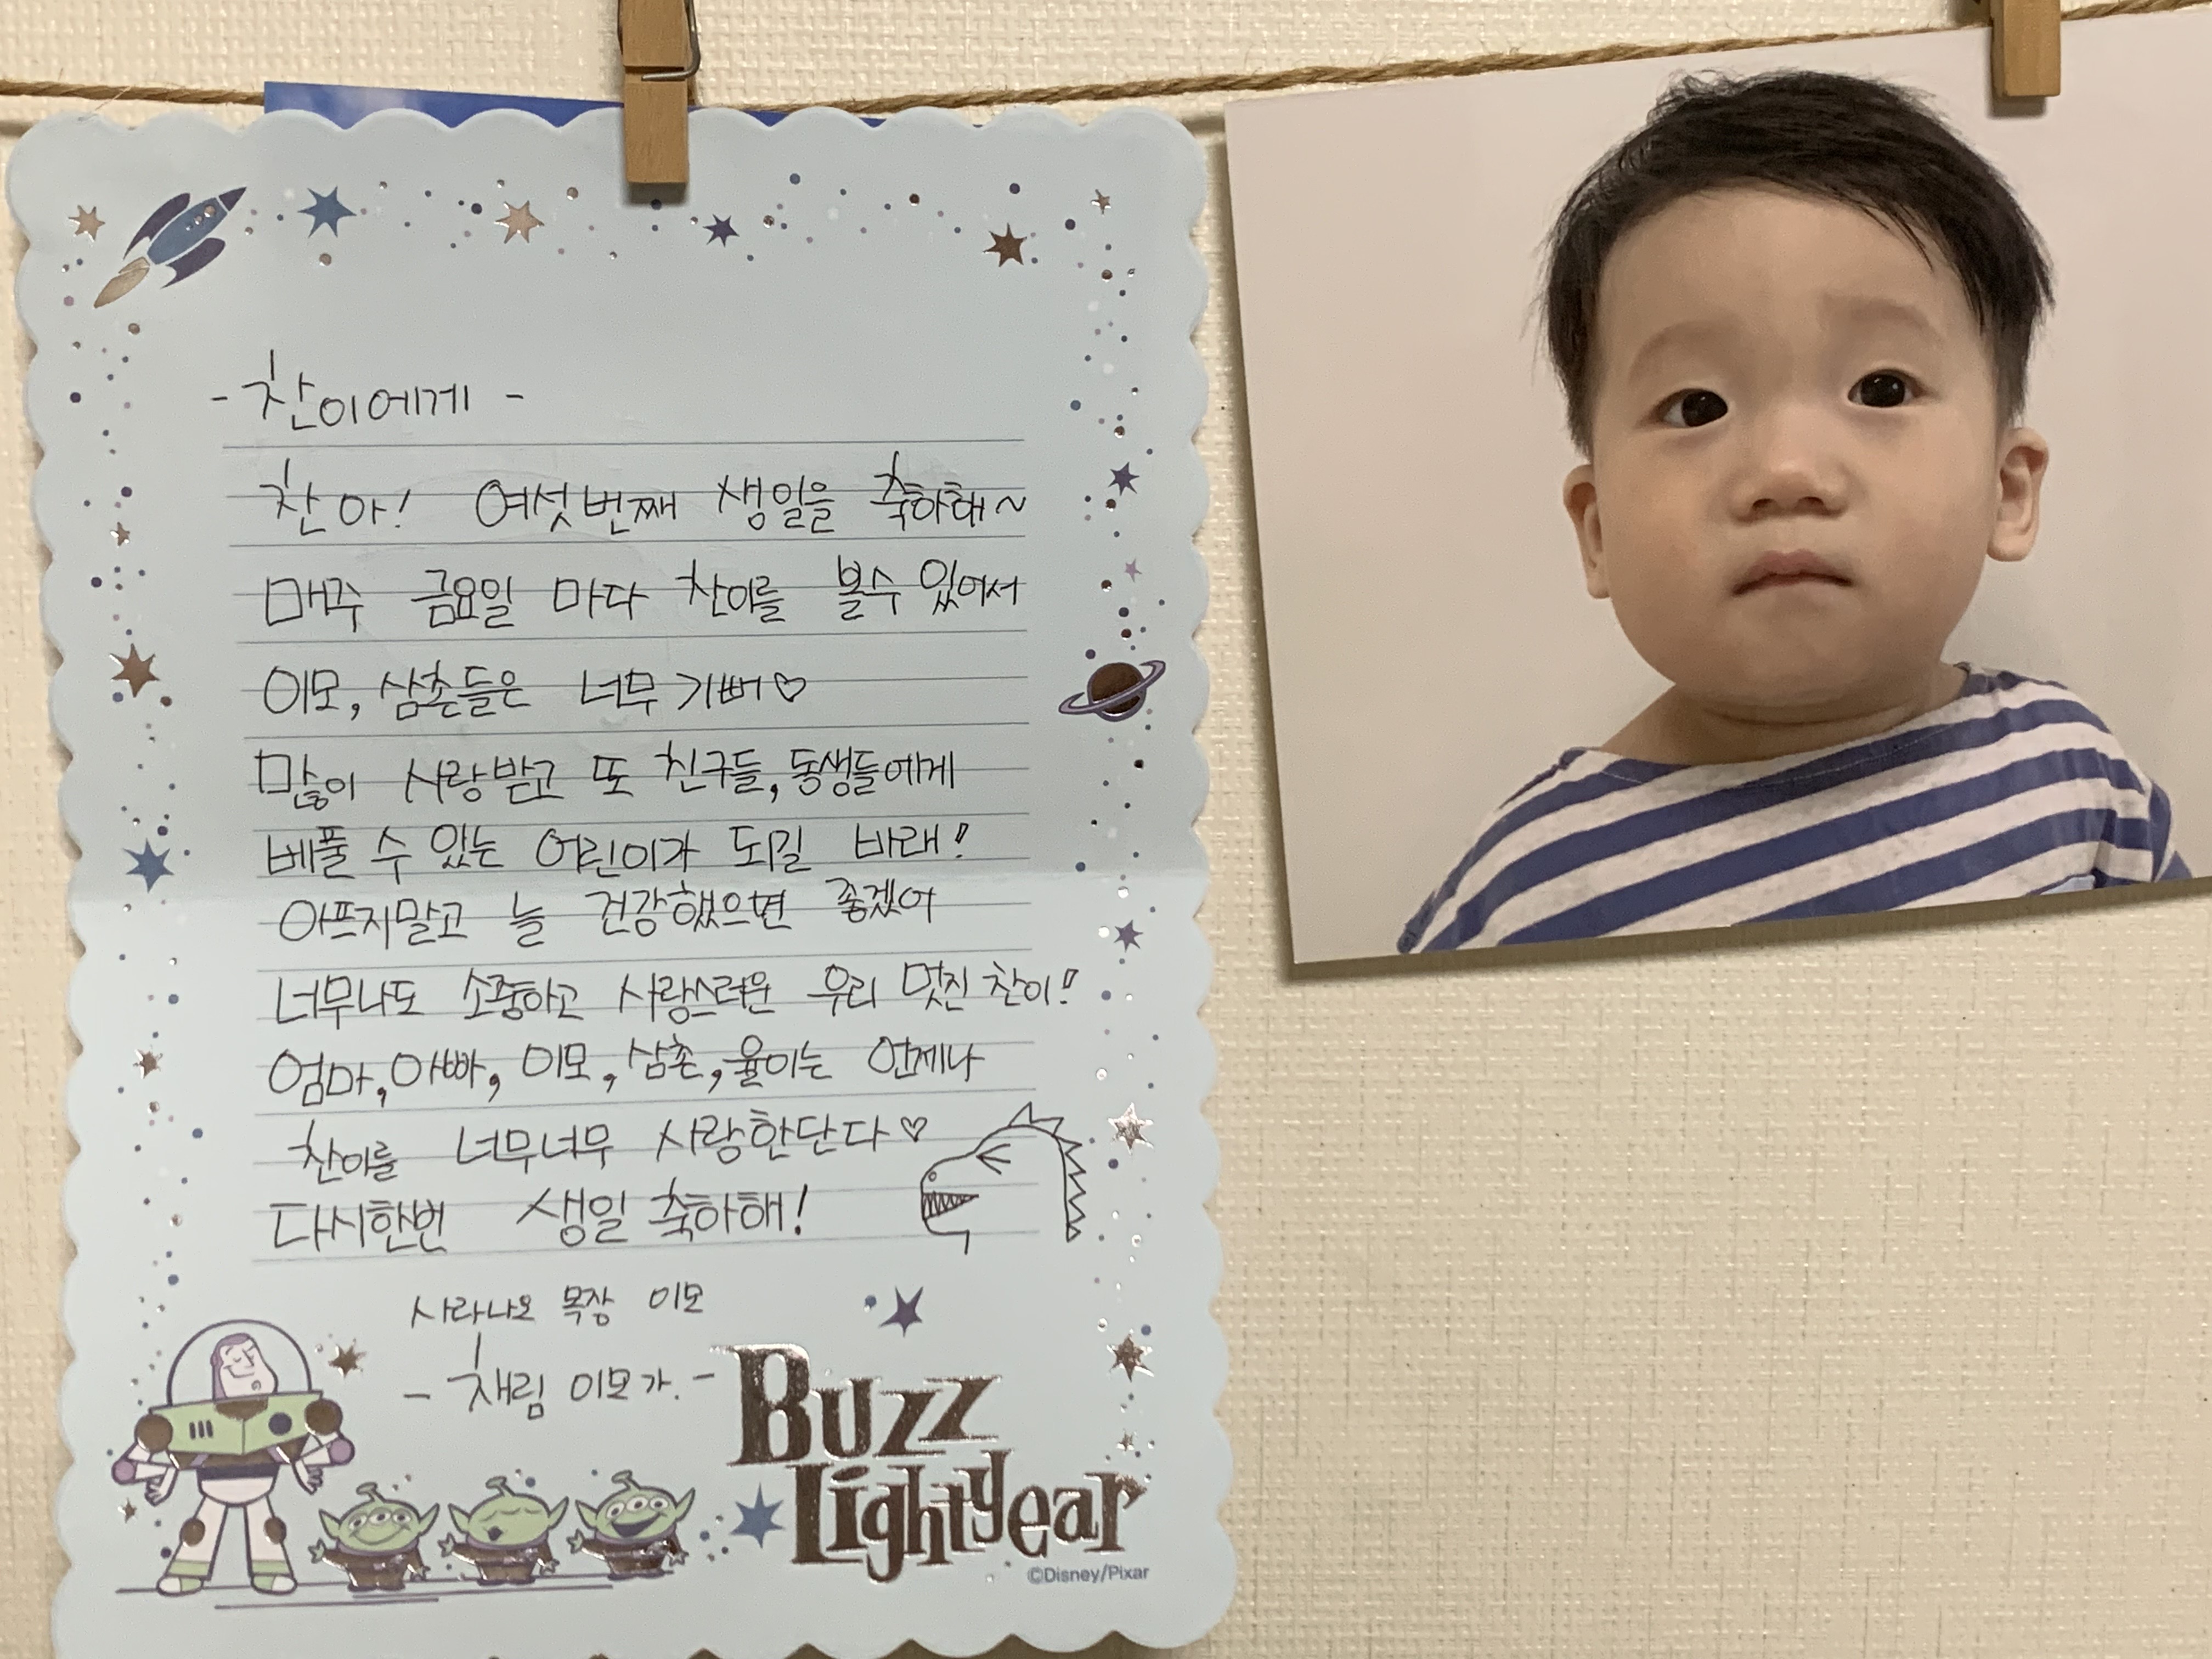 - 찬이에게 -
찬아! 여섯번째 생일을 축하해~
매주 금요일 마다 찬이를 볼수 있어서
이모, 삼촌들은 너무 기뻐♡
많이 사랑받고 또 친구들, 동생들에게
베풀 수 있는 어린이가 되길 바래!
아프지말고 늘 건강했으면 좋겠어
너무나도 소중하고 사랑스러운 우리 멋진 찬이!!
엄마, 아빠, 이모, 삼촌, 율이는 언제나
찬이를 너무너무 사랑한단다♡
다시한번 생일 축하해!
사라나오 목장 이모
- 채림 이모가. -
BUZZ
LIGHTYEAR
©Disney/Pixar